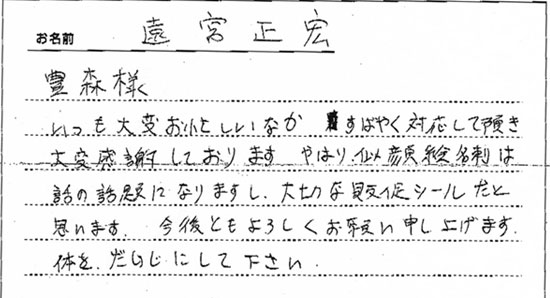 お名前 遠宮正宏
豊森様
いつも大変お忙しいなか すばやく対応して頂き
大変感謝しております やはり似顔絵名刺は
話の話題になりますし、大切な販促シールだと
思います. 今後ともよろしくお願い申し上げます.
体を.だいじにして下さい.